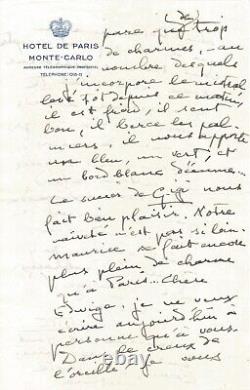 (2)
HOTEL DE PARIS
MONTE-CARLO
ADRESSE TÉLÉGRAPHIQUE
TÉLÉPHONE:
paré trop
de charmes, au
nombre desquels
j'incorpore le mistral
levé tôt depuis ce matin,
il est bleu, il sent
bon, il berce les pal-
miers, il nous apporte
un bleu, un vert, et
un bord blanc d'écume...
Le succès de Gigi nous
fait bien plaisir. Notre
naïveté n'est pas si loin.
Maurice se fait encore
plus plein de charme
qu'à Paris... Chère
Edwige, je ne veux
écrire aujourd'hui à
personne qu'à vous.
Dans le creux de
l'oreille je vous